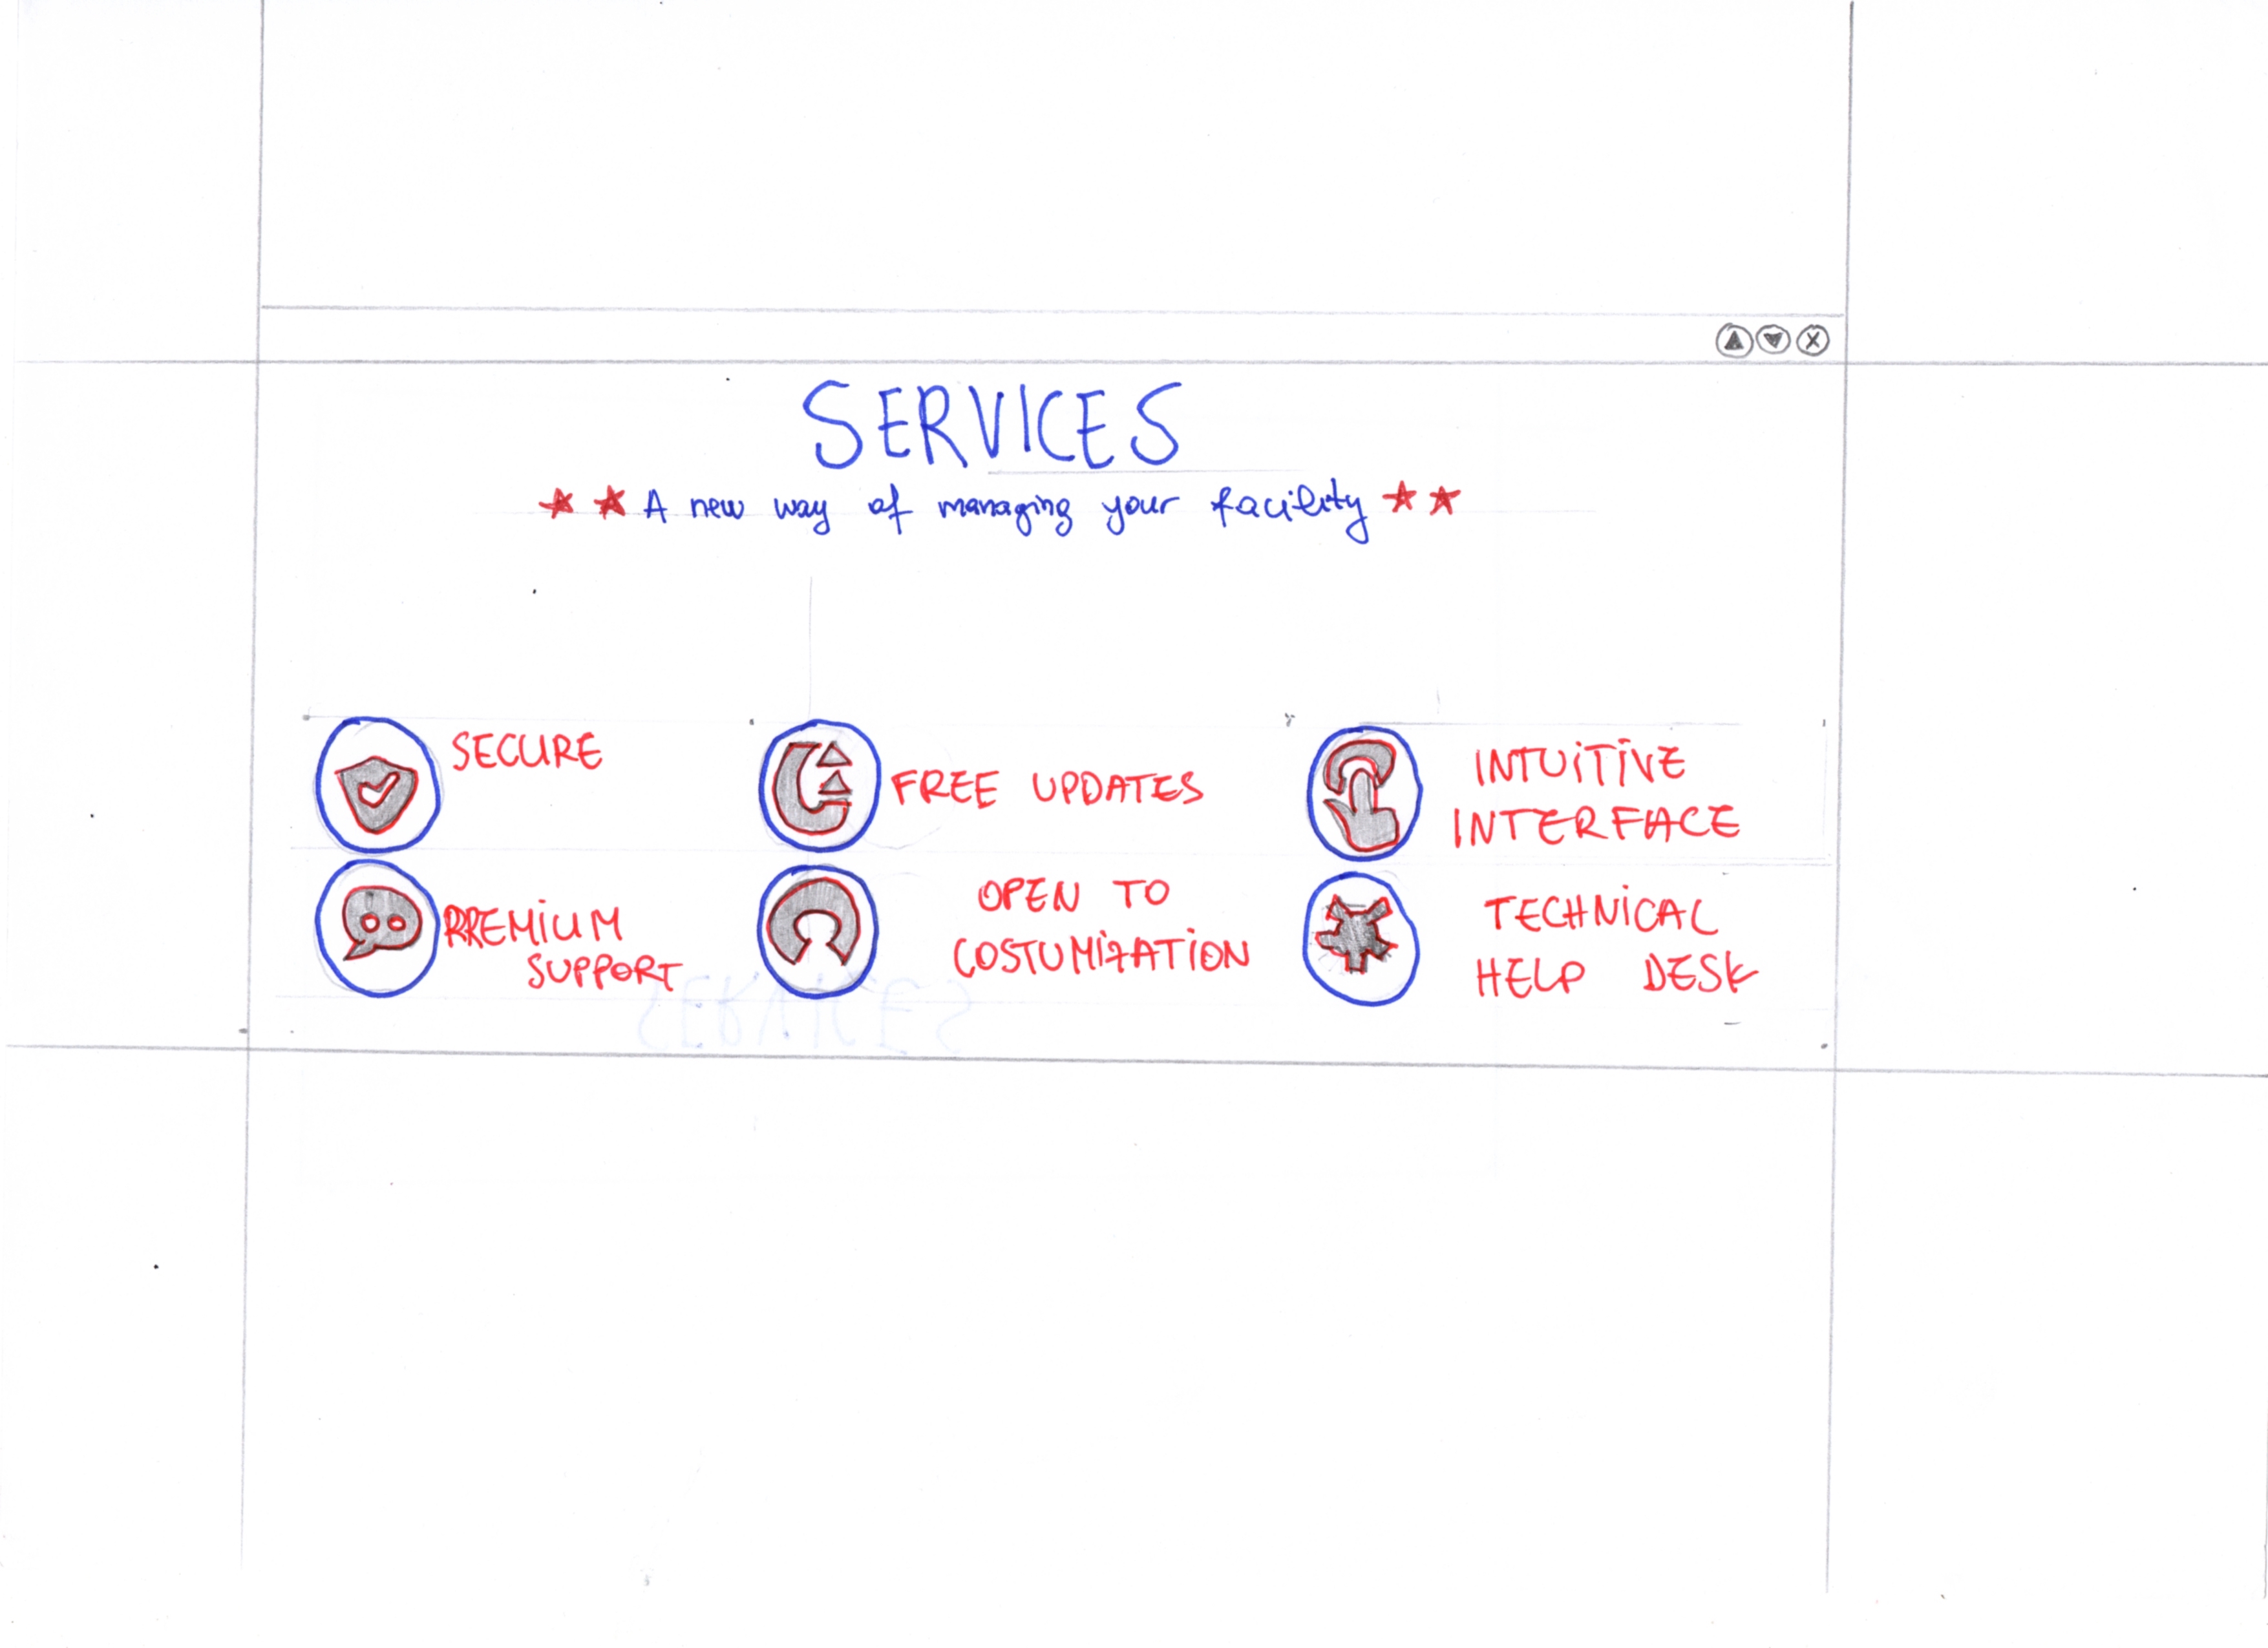 SERVICES
A new way of managing your facility
SECURE
FREE UPDATES
INTUITIVE
INTERFACE
PREMIUM
SUPPORT
OPEN TO
COSTUMIZATION
TECHNICAL
HELP DESK